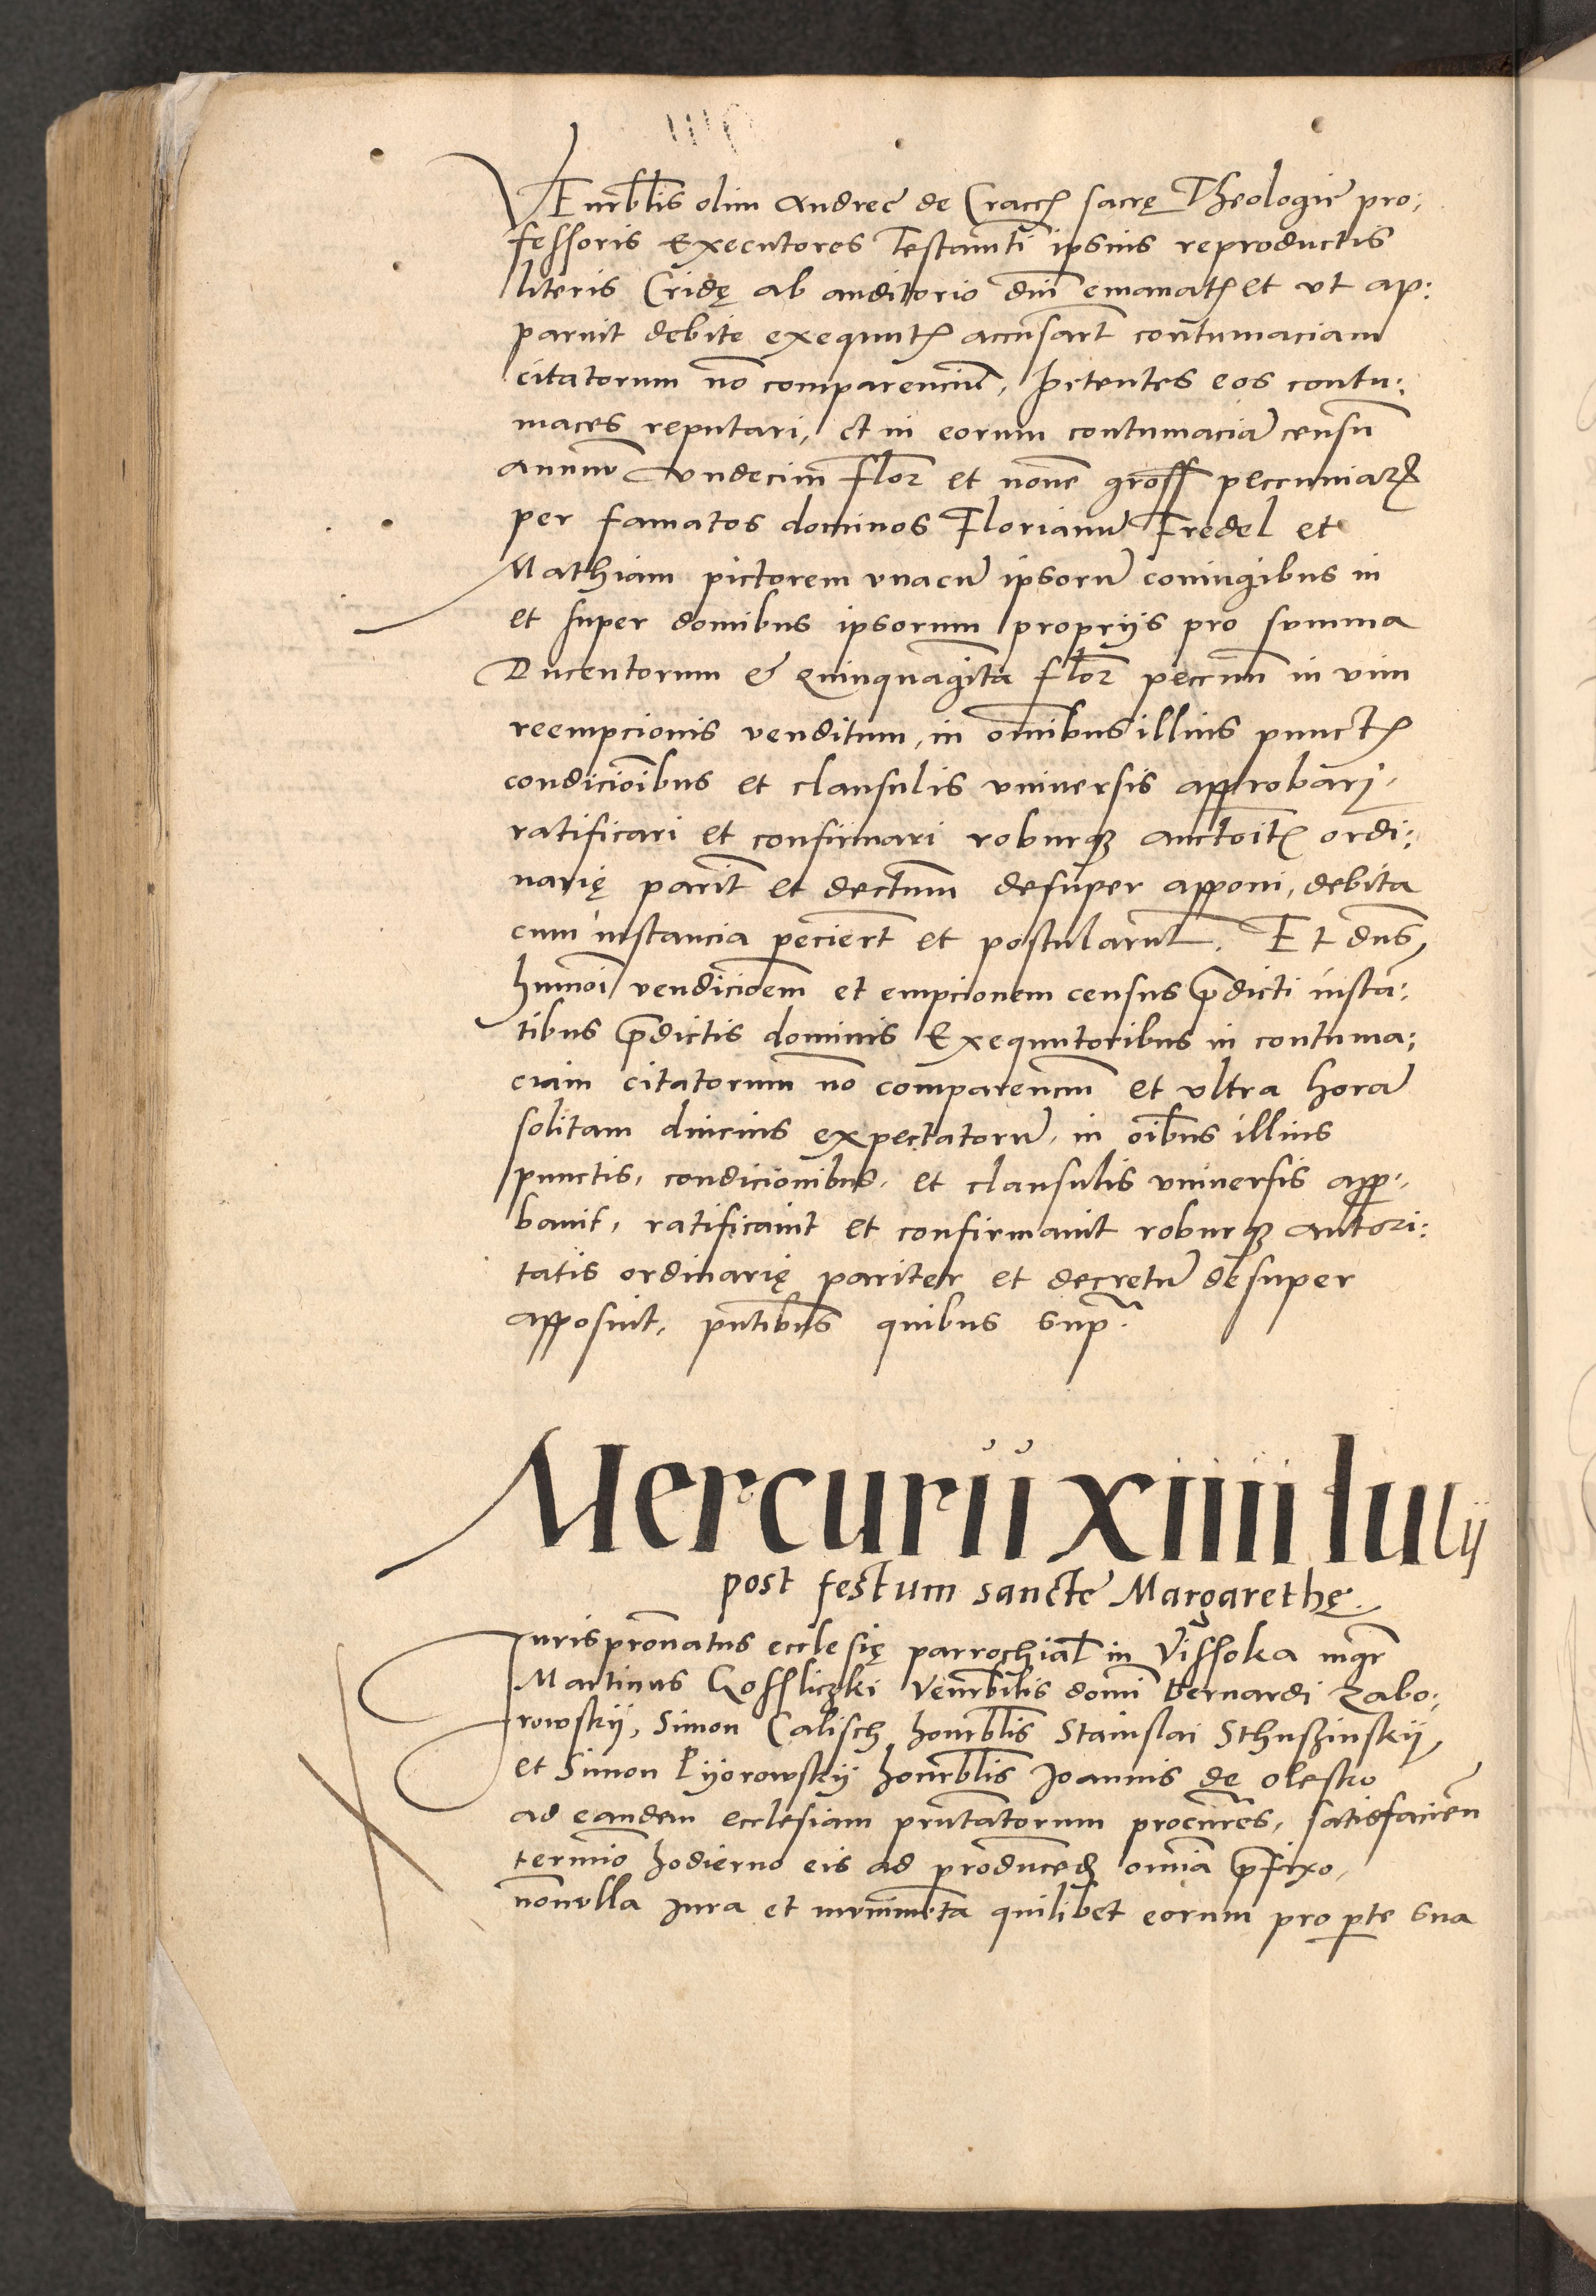 VEnerblis olim Andree de Cracc sacrę Theologie pro:
fessoris Executores Testamti ipsius reproductis
literis Cridę ab auditorio dni emanat et vt ap:
paruit debite exequut accusart contumaciam
citatorum no comparencium, petentes eos contu:
maces reputari, et in eorum contumacia censu
annuu vndecim flor et noue gross peccuniar
per famatos dominos Florianu Fredel et
Mathiam pictorem vnacu ipsoru coniugibus in
et super domibus ipsorum proprijs pro summa
Ducentorum & Quinquaginta flor peccun in vim
reempcionis venditum, in omnibus illius punct
condicioibus et clausulis vniuersis approbari,
ratificari et confirmari roburq auctoit ordi:
narię parit et dectum desuper apponi, debita
cum instancia peciert et postularut. Et dns
humoi vendicioem et empcionem census pdicti insta:
tibus pdictis dominis Exequutoribus in contuma:
ciam citatorum no comparencium et vltra hora
solitam diucius expectatoru, in oibus illius
punctis, condicionibus, et clausulis vniuersis app:
bauit, ratificauit et confirmauit roburq autori:
tatis ordinarię pariter et decretu desuper
apposuit, pntibus quibus sup.
Mercurii xiiii Iulij
post festum sancte Margarethę.
Jurispronatus ecclesię parrochial in Vissoka mgr
Martinus Gosliczki venerbilis domi Bernardi Zabo:
rowskij, Simon Calisch honrblis Stanislai
et Simon Pijorowskij honrblis Joannis de Olesko
ad eandem ecclesiam pntatorum procures, satisfacien
termio hodierno eis ad producend omnia pfixo,
nonulla Jura et munimeta quilibet eorum pro pte sua